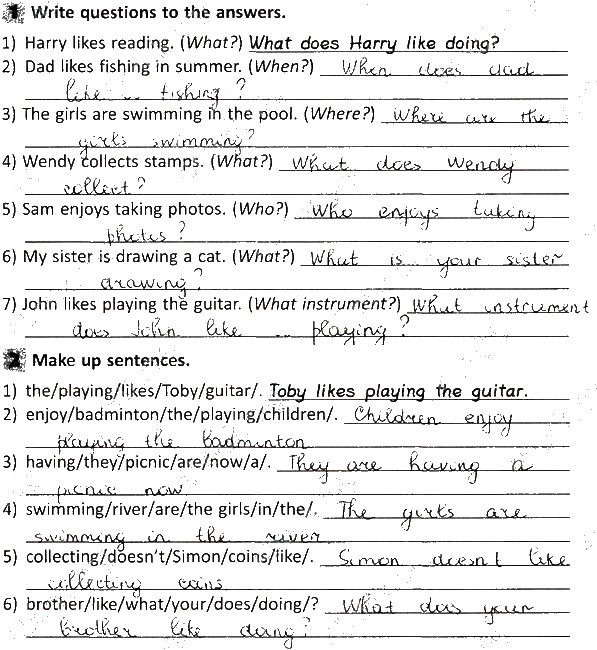 1 Write questions to the answers.
1) Harry likes reading. (What?) What does Harry like doing?
2) Dad likes fishing in summer. (When?) When does dad
like fishing?
3) The girls are swimming in the pool. (Where?) Where are the
girls swimming?
4) Wendy collects stamps. (What?) What does Wendy
collect?
5) Sam enjoys taking photos. (Who?) Who enjoys taking
photos?
6) My sister is drawing a cat. (What?) What is your sister
drawing?
7) John likes playing the guitar. (What instrument?) What instrument
does John like playing?
2 Make up sentences.
1) the/playing/likes/Toby/guitar/. Toby likes playing the guitar.
2) enjoy/badminton/the/playing/children/. Children enjoy
playing the badminton
3) having/they/picnic/are/now/a/. They are having a
picnic now
4) swimming/river/are/the girls/in/the/. The girls are
swimming in the river
5) collecting/doesn't/Simon/coins/like/. Simon doesn't like
collecting coins
6) brother/like/what/your/does/doing/? What does your
brother like doing?